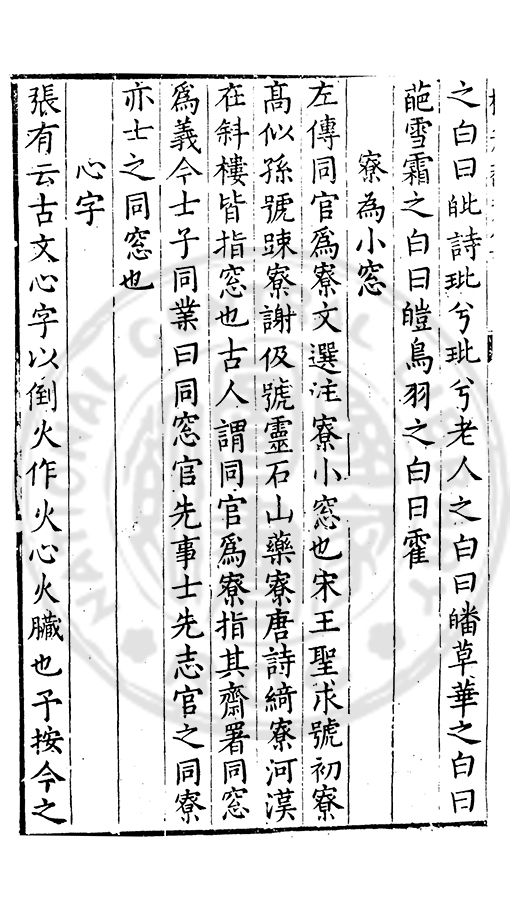 之白曰皉詩玼兮玼兮老人之白曰皤草華之白曰
葩雪霜之白曰皚鳥羽之白曰靃
寮為小窓
左傳同官爲寮文選注寮小窓也宋王聖求號初寮
高似孫號踈寮謝伋號靈石山藥寮唐詩綺寮河漢
在斜樓皆指窓也古人謂同官爲寮指其齋署同窓
爲義今士子同業曰同窓官先事士先志官之同寮
亦士之同窓也
心字
張有云古文心字以倒火作火心火臟也予按今之
NATIONAL CENTRAL LIBRARY